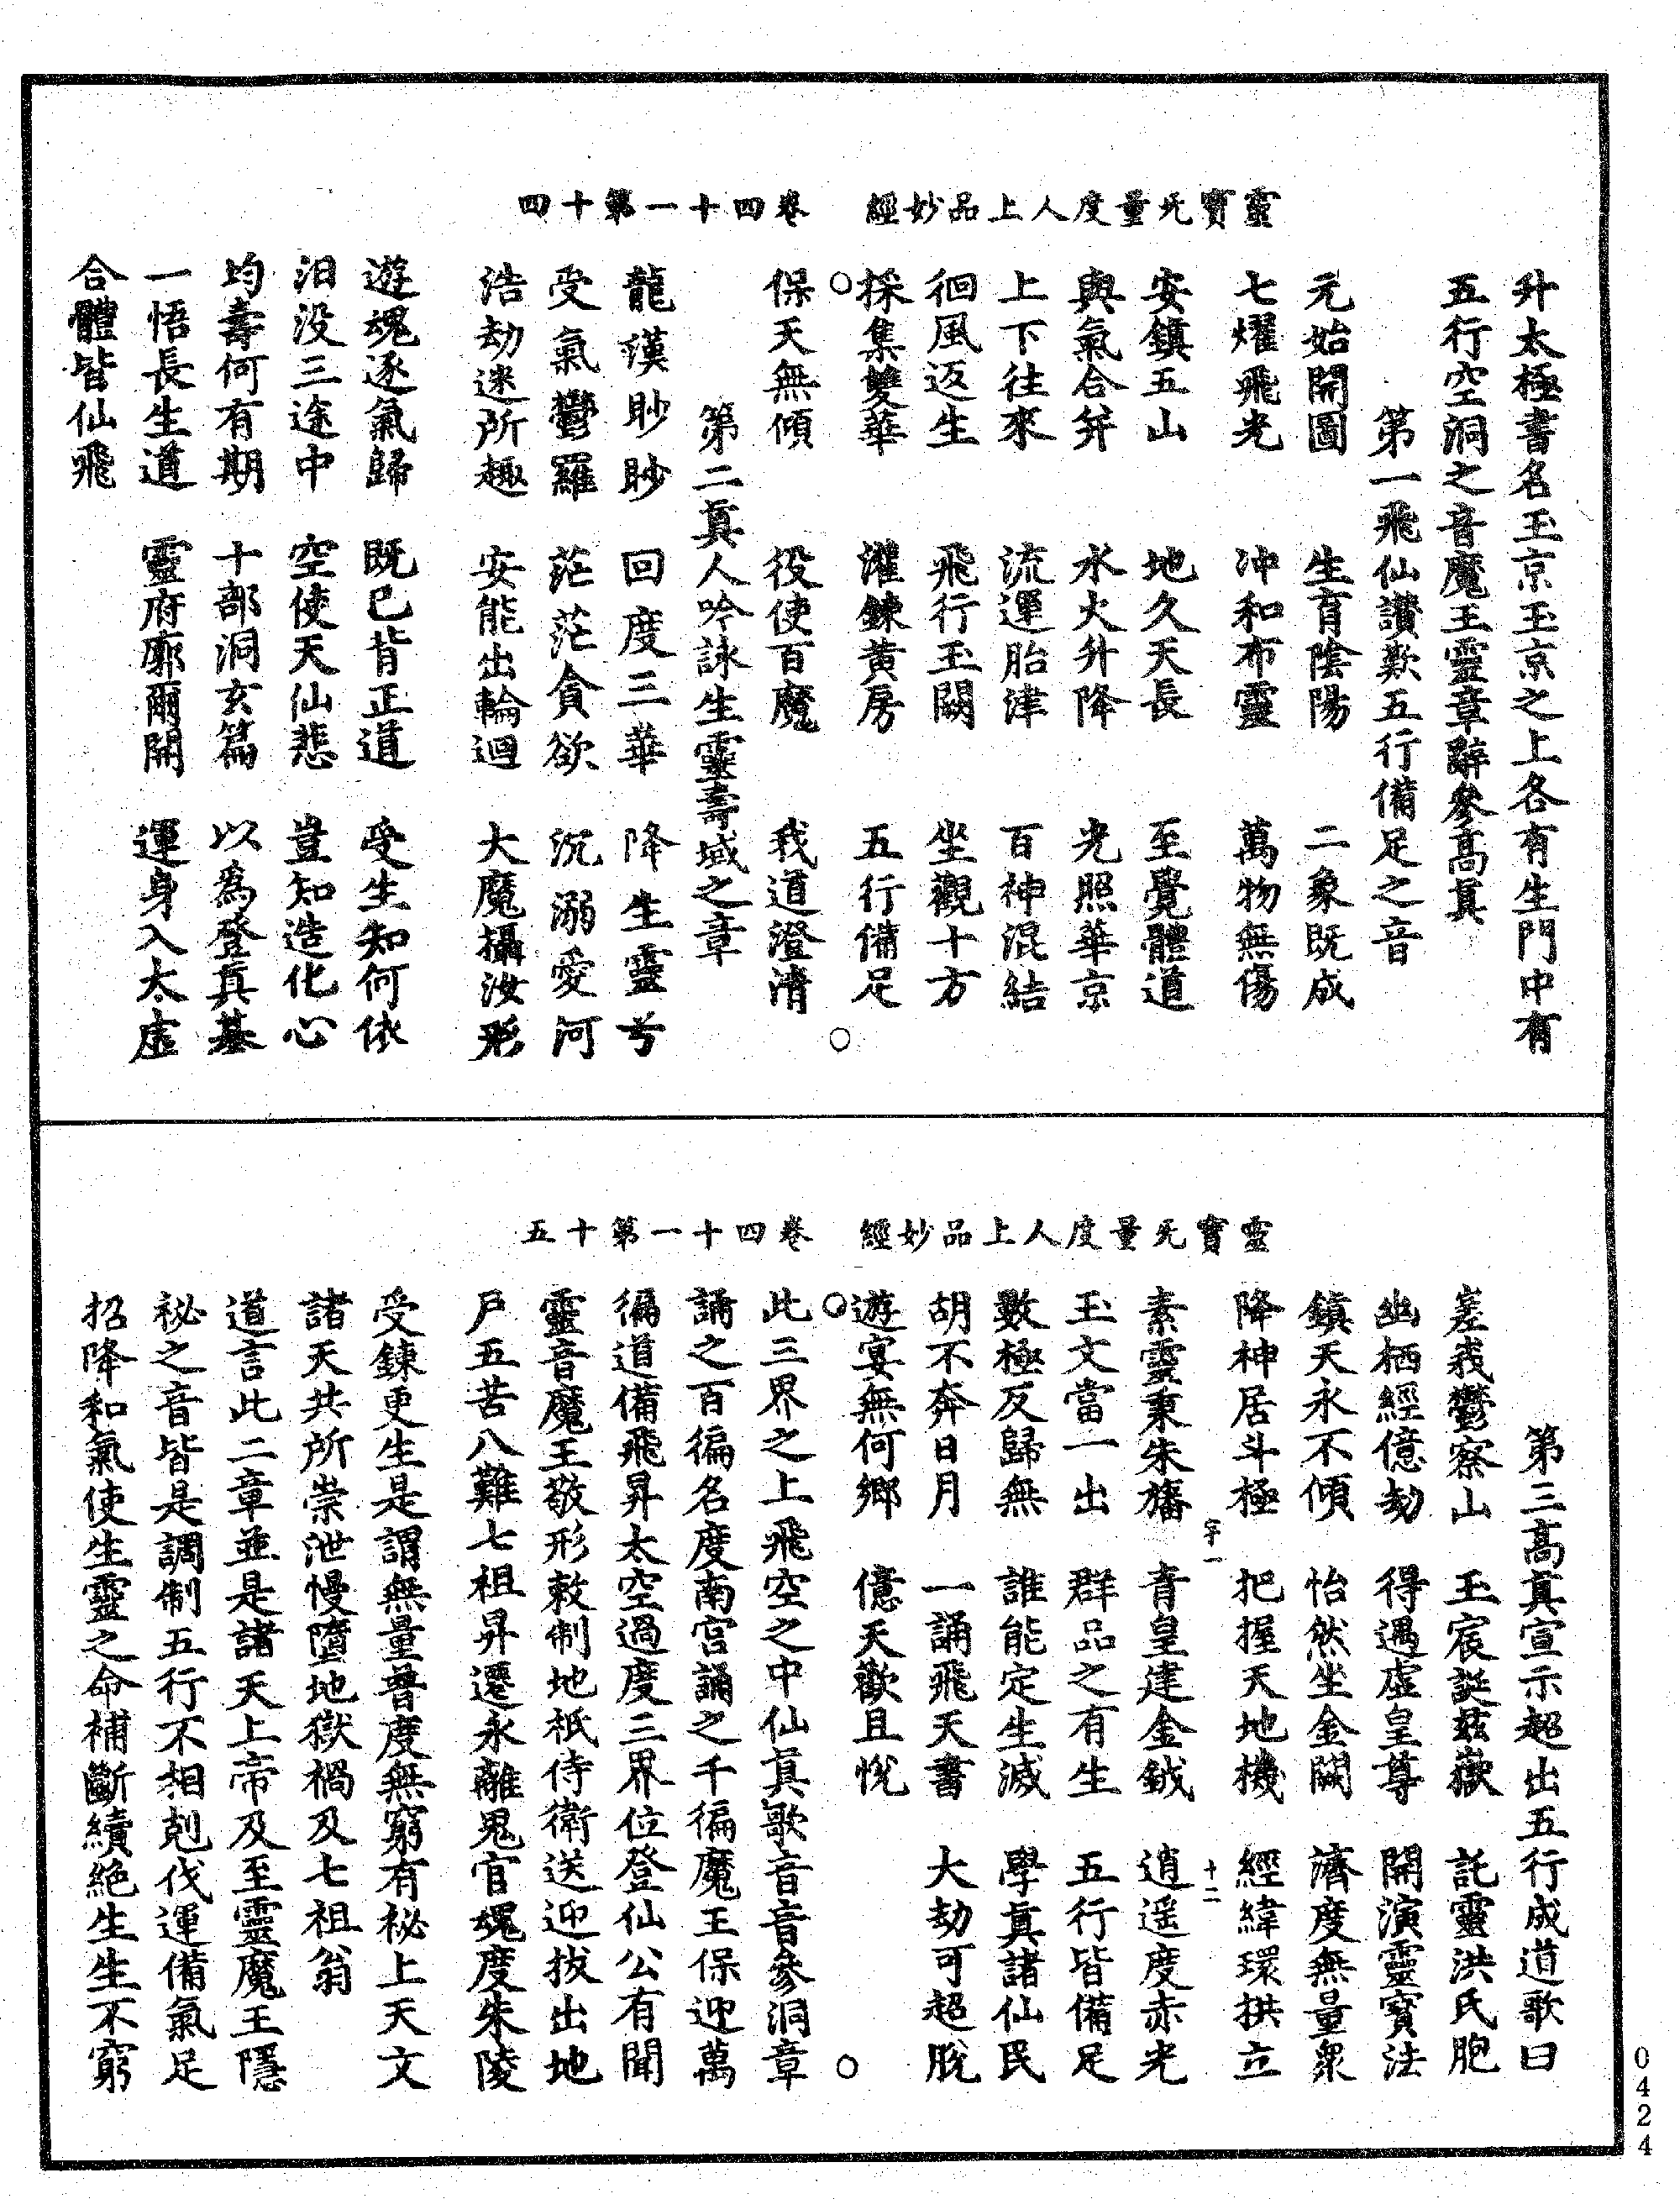 靈寶无量度人上品妙經　卷四十一第十四
升太極書名玉京玉京之上各有生門中有
五行空洞之音魔王靈章辭參高真
第一飛仙讚歎五行備足之音
元始開圖　生育陰陽　二象既成
七燿飛光　冲和布靈　萬物無傷
安鎮五山　地久天長　至覺體道
與氣合并　水火升降　光照華京
上下往來　流運胎津　百神混結
徊風返生　飛行玉闕　坐觀十方
採集雙華　灌鍊黃房　五行備足
保天無傾　役使百魔　我道澄清
第二真人吟詠生靈壽域之章
龍漢眇眇　回度三華　降生靈兮
受氣鬱羅　茫茫貪欲　沉溺愛河
浩劫迷所趣　安能出輪迴　大魔攝汝形
遊魂逐氣歸　既已背正道　受生知何依
汨没三途中　空使天仙悲　豈知造化心
均壽何有期　十部洞玄篇　以為登真基
一悟長生道　靈府廓爾開　運身入太虛
合體皆仙飛
靈寶无量度人上品妙經　卷四十一第十五
第三高真宣示超出五行成道歌曰
嵳峩鬱察山　玉宸誕茲嶽　託靈洪氏胞
幽栖經億劫　得遇虛皇尊　開演靈寶法
鎮天永不傾　怡然坐金闕　濟度無量衆
降神居斗極　把握天地機　經緯環拱立
字一　十二
素靈秉朱旛　青皇建金鉞　逍遥度赤光
玉文當一出　群品之有生　五行皆備足
數極反歸無　誰能定生滅　學真諸仙民
胡不奔日月　一誦飛天書　大劫可超脫
遊宴無何鄉　億天歡且悅
此三界之上飛空之中仙真歌音音參洞章
誦之百徧名度南宮誦之千徧魔王保迎萬
徧道備飛昇太空過度三界位登仙公有聞
靈音魔王敬形敕制地祇侍衛送迎拔出地
戶五苦八難七祖昇遷永離鬼官魂度朱陵
受鍊更生是謂無量普度無窮有祕上天文
諸天共所崇泄慢墮地獄禍及七祖翁
道言此二章並是諸天上帝及至靈魔王隱
祕之音皆是調制五行不相剋伐運備氣足
招降和氣使生靈之命補斷續絶生生不窮
0424